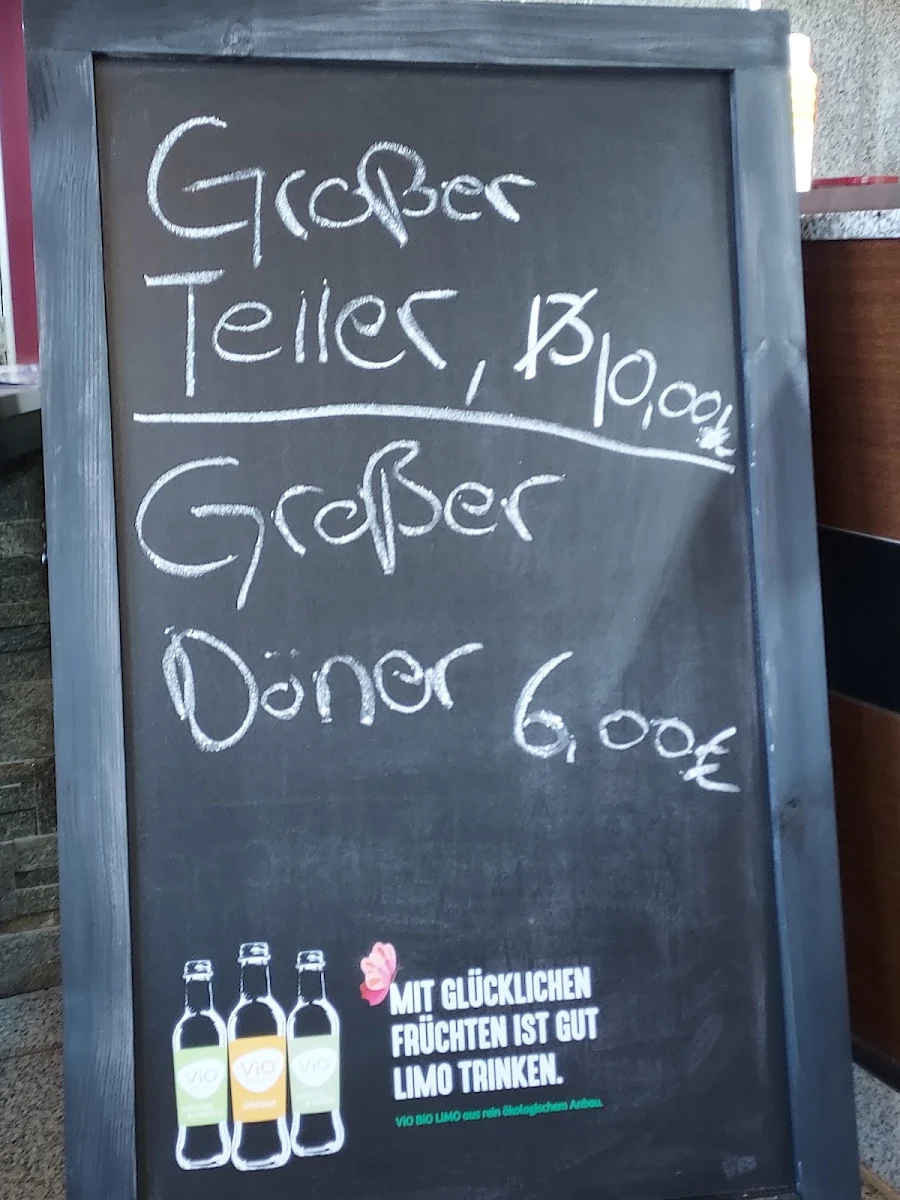 Großer
Teller, 13 10,00€
Großer
Döner 6,00€
MIT GLÜCKLICHEN
FRÜCHTEN IST GUT
LIMO TRINKEN.
ViO BiO LiMO aus rein ökologischem Anbau.
ViO
ViO
ORANGE
ViO